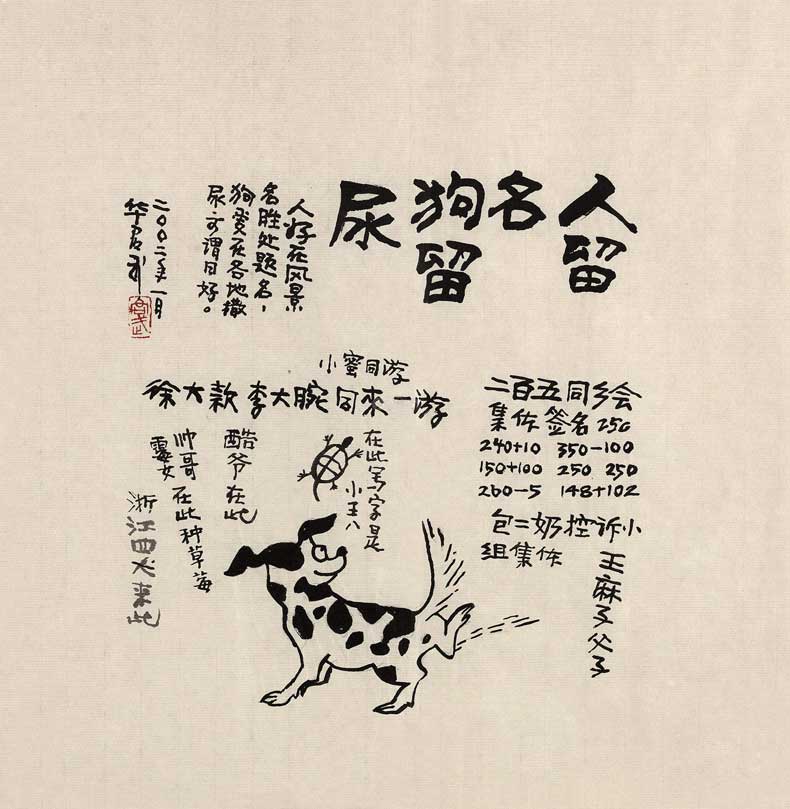 人留
名
狗留
尿
人好在风景
名胜处题名，
狗爱在各地撒
尿、可谓同好。
二〇〇二年一月
华君武
二百五同乡会
集体签名250
240+10 350-100
150+100 250 250
260-5 148+102
包二奶控诉小
组集体
王麻子父子
小蜜同游
徐大款李大腕同來一游
在此写字是
小王八
酷爷在此
帅哥在此种草莓
霉女
浙江四犬来此